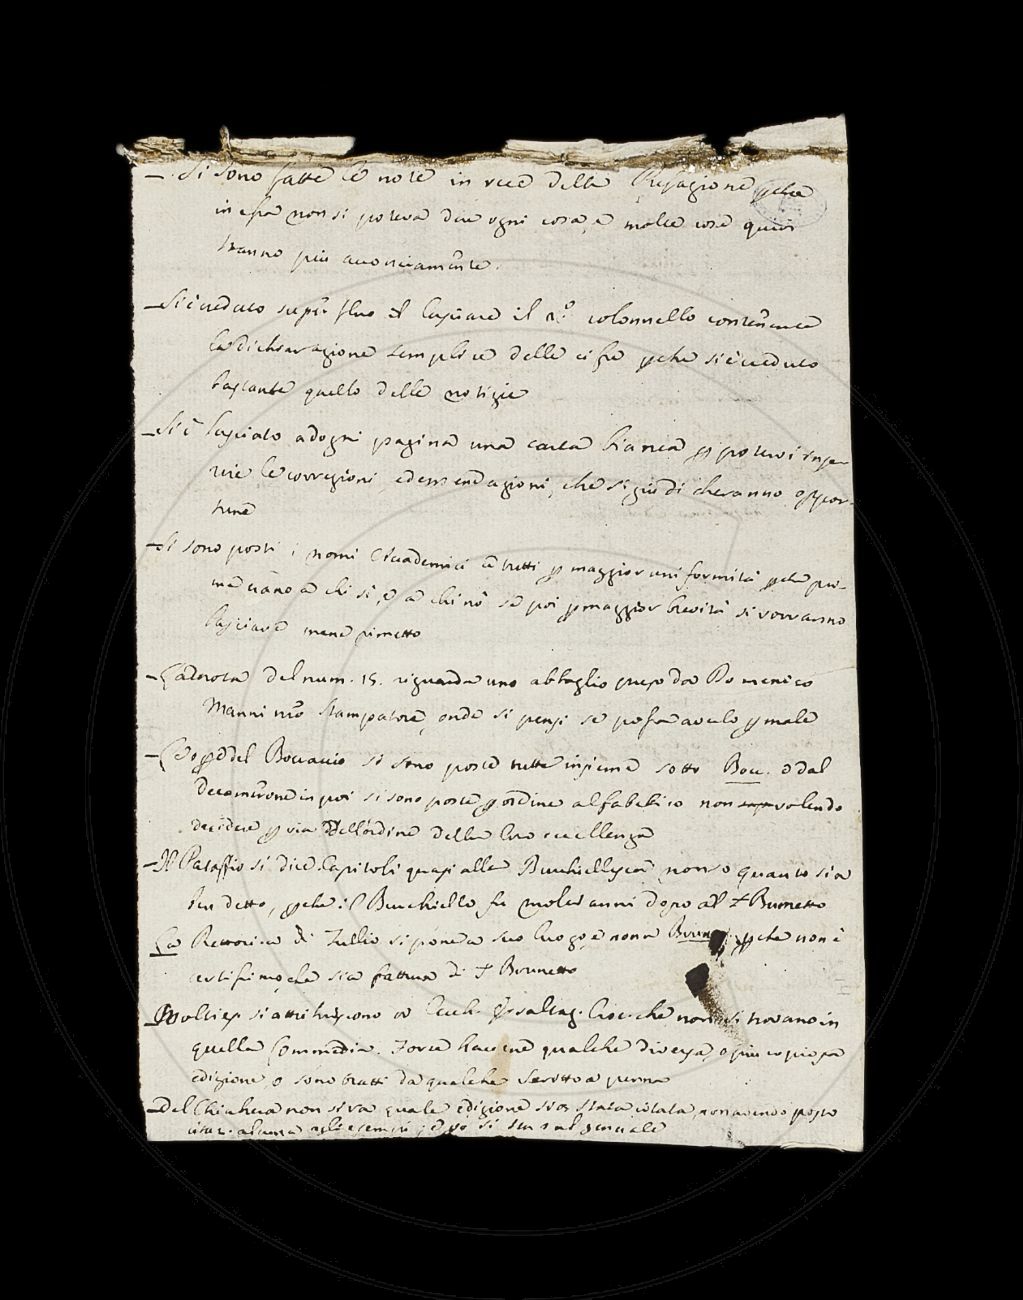 – Si sono fatte le note in vece della Prefazione ꝑche
in essa non si poteva dire ogni cosa, e molte cose quivi
stanno più acconciamente.
– Si è creduto superfluo il lasciare il 2.º colonnello contenente
la dichiarazione semplice delle cifre ꝑche si è creduto
bastante quello delle notizie
– Si è lasciato ad ogni pagina una carta bianca ꝑ potervi inse-
rire le correzioni ed emendazioni, che si giudicheranno oppor-
tune
– Si sono posti i nomi Accademici a tutti ꝑ maggior uniformità ꝑche pri-
ma erano a chi sì, e a chi nò se poi ꝑ maggior brevità si vorranno
lasciare mene rimetto
– La nota del num. 15. riguarda uno abbaglio preso da Domenico
Manni nrõ Stampatore, onde si pensi se possa averlo ꝑ male
– Le oꝑe del Boccaccio si sono poste tutte insieme sotto Bocc. e dal
Decamerone in poi si sono poste ꝑ ordine alfabetico non volendo
decidere ꝑ via dell'ordine della loro eccellenza
– Il Pataffio si dice Capitoli quasi alla Burchiellesca, non so quanto sia
ben detto, ꝑche il Burchiello fu molti anni dopo al S Brunetto
La Rettorica di Tullio si pone a suo luogo e non a Brun ꝑche non è
certissimo, che sia fattura di S Brunetto
– Molti es. si attribuiscono a Cecch. Esaltaz. Croc. che non si trovano in
quella Commedia. Forse haccene qualche diversa, o più copiosa
edizione o sono tratti da qualche scritto a penna
– Del Chiabrera non si sa quale edizione sia stata citata, non avendo posto
alcuna agli esempi; e ꝑò si sta sul generale